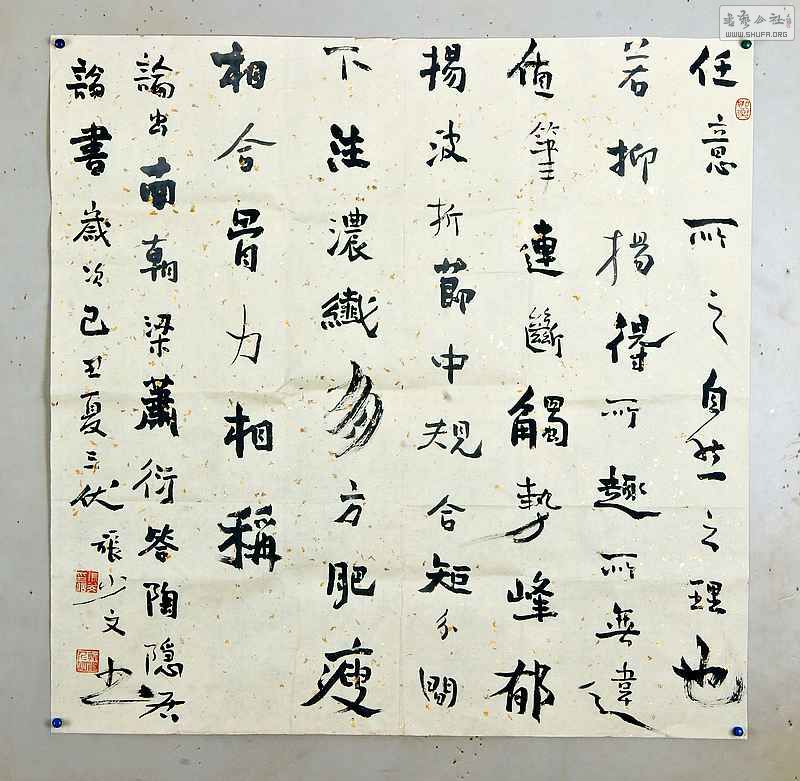 任意所之自然之理也
若抑揚得所趣所無違
值筆連斷觸勢峰郁
揚波折節中規合矩分閒
下注濃纖有方肥瘦
相合骨力相稱
論出南朝梁蕭衍答陶隱居
論書歲次己丑夏三伏張少文書
書藝公社
WWW.SHUFA.ORG